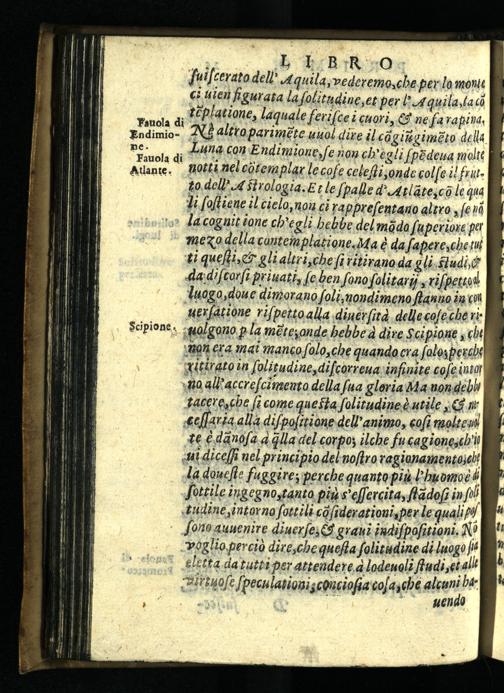 LIBRO
ſuiſcerato dell'Aquila, vederemo, che per lo monte
ci uien figurata la ſolitudine, et per l'Aquila, la cō
tēplatione, laquale feriſce i cuori, & ne fa rapina.
Fauola di
Endimio-
ne.
Nē altro parimēte uuol dire il cōgiūgimēto della
Luna con Endimione, ſe non ch'egli ſpēdeua molte
Fauola di
Atlante.
notti nel cōtemplar le coſe celeſti, onde colſe il frut-
to dell'Aſtrologia. Et le ſpalle d'Atlāte, cō le qua
li ſoſtiene il cielo, non ci rappreſentano altro, ſe nō
la cognitione ch'egli hebbe del mōdo ſuperiore per
mezo della contemplatione. Ma è da ſapere, che tut
ti queſti, & gli altri, che ſi ritirano da gli ſtudi, &
da diſcorſi priuati, ſe ben ſono ſolitarij, riſpetto al
luogo, doue dimorano ſoli, nondimeno ſtanno in con
uerſatione riſpetto alla diuerſità delle coſe che ri-
Scipione.
uolgono p la mēte; onde hebbe à dire Scipione, che
non era mai manco ſolo, che quando era ſolo; perche
ritirato in ſolitudine, diſcorreua infinite coſe intor
no all'accreſcimento della ſua gloria Ma non debbo
tacere, che ſi come queſta ſolitudine è utile, & ne
ceſſaria alla diſpoſitione dell'animo, coſi molte uol
te è dānoſa à q̄lla del corpo; ilche fu cagione, ch'io
ui diceſſi nel principio del noſtro ragionamento, che
la doueſte fuggire; perche quanto più l'huomo è di
ſottile ingegno, tanto più s'eſſercita, ſtādoſi in ſoli
tudine, intorno ſottili cōſiderationi, per le quali poſ
ſono auuenire diuerſe, & graui indiſpoſitioni. Nō
voglio perciò dire, che queſta ſolitudine di luogo ſia
eletta da tutti per attendere à lodeuoli ſtudi, et alle
virtuoſe ſpeculationi; concioſia coſa, che alcuni ha-
uendo